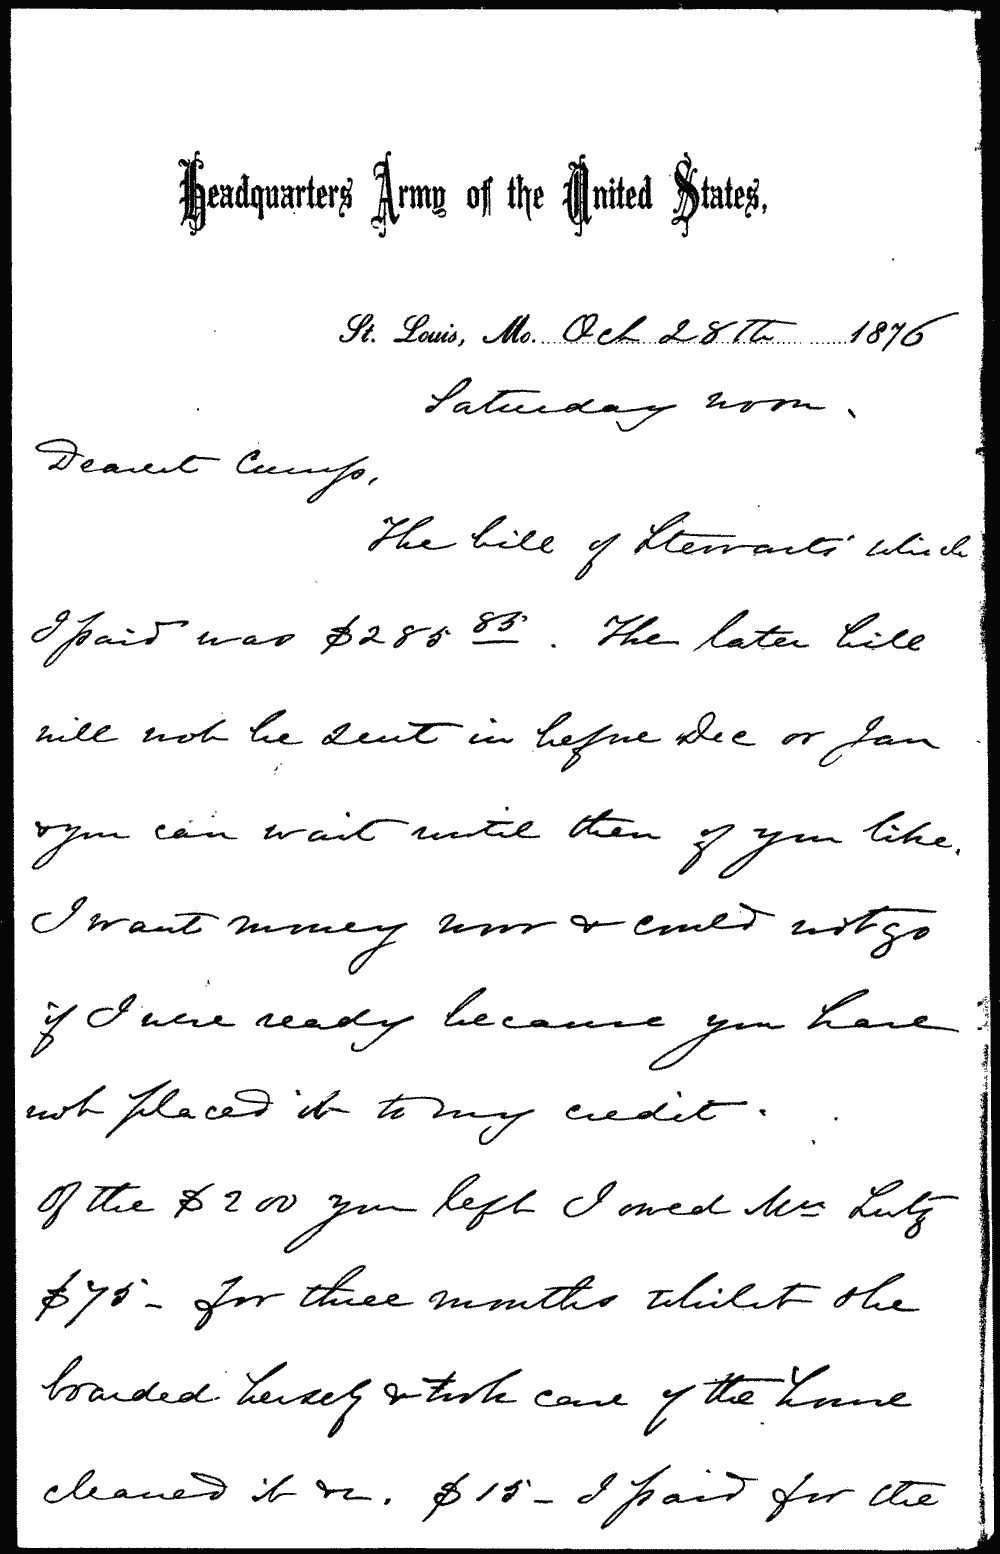 Headquarters Army of the United States,
St. Louis, Mo. Oct 28th 1876
Saturday noon.
Dearest Cump,
The bill of Stewarts' which
I paid was $285 85. The later bill
will not be sent in before Dec or Jan
& you can wait until then if you like.
I want money now & could not go
if I were ready because you have
not placed it to my credit.
Of the $200 you left I owed Mrs Lutz
$75 - for three months whilst she
boarded herself & took care of the house
cleaned it &c. $15 - I paid for the